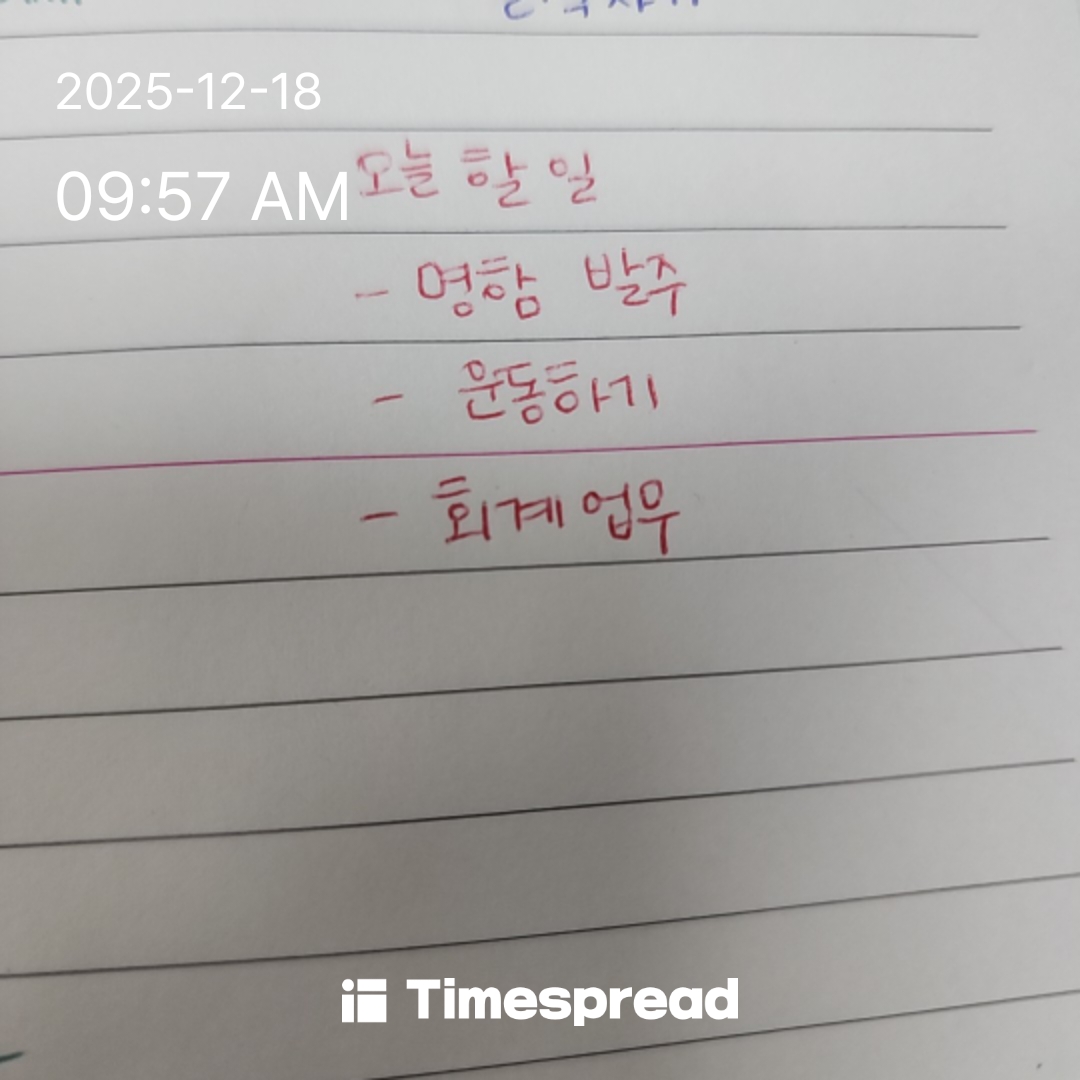 2025-12-18
09:57 AM
오늘 할 일
- 명함 발주
- 운동하기
- 회계업무
Timespread